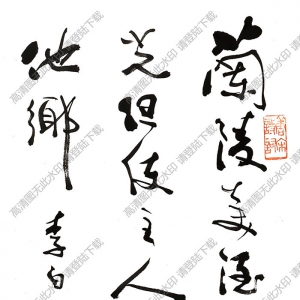 蘭陵美酒
光但使主人
他鄉
李白
高清图无此水印 请登陆下载